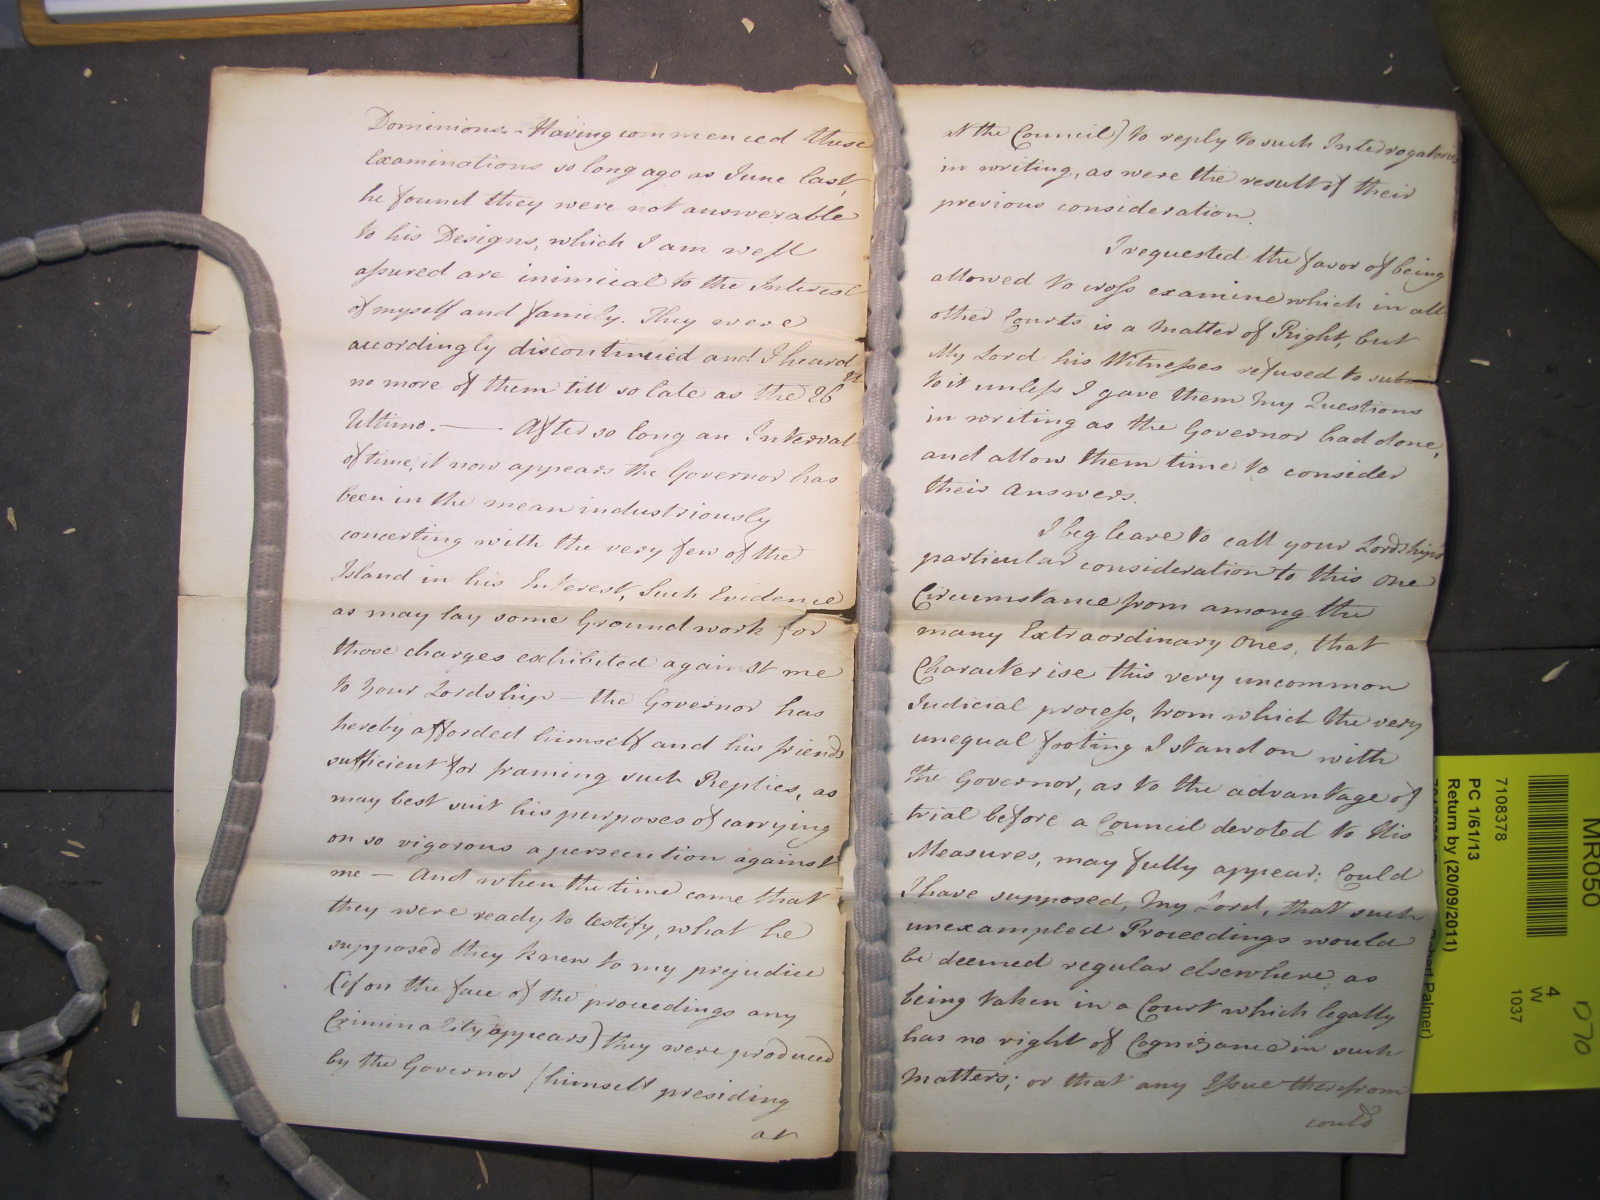 Dominions. - Having commenced these
Examinations so long ago as June last,
he found they were not answerable
to his Designs, which I am well
assured are inimical to the Interest
of myself and family. They were
accordingly discontinued and I heard
no more of them till so late as the 26th
Ultimo. — After so long an Interval
of time, it now appears the Governor has
been in the mean industriously
concerting with the very few of the
Island in his Interest, such Evidence
as may lay some Ground work for
those charges exhibited against me
to your Lordship — the Governor has
hereby afforded himself and his friends
sufficient for framing such Replies, as
may best suit his purposes of carrying
on so vigorous a persecution against
me — And when the time came that
they were ready to testify, what he
supposed they knew to my prejudice
(if on the face of the proceedings any
Criminality appears) they were produced
by the Governor (himself presiding
at
at the Council) to reply to such Interrogatories
in writing, as were the result of their
previous consideration.
I requested the favor of being
allowed to cross examine which in all
other Courts is a Matter of Right, but
My Lord his Witnesses refused to submit
to it unless I gave them my Questions
in writing as the Governor had done,
and allow them time to consider
their Answers.
I beg leave to call your Lordship's
particular consideration to this one
Circumstance from among the
many Extraordinary Ones, that
Characterise this very uncommon
Judicial process, from which the very
unequal footing I stand on with
the Governor, as to the advantage of
trial before a Council devoted to his
Measures, may fully appear: Could
I have supposed, My Lord, that such
unexampled Proceedings would
be deemed regular elsewhere as
being taken in a Court which legally
has no right of Cognizance in such
Matters; or that any Issue therefrom
could
MR050
4
W
1037
7108378
PC 1/61/13
Return by (20/09/2011)
Palmer)